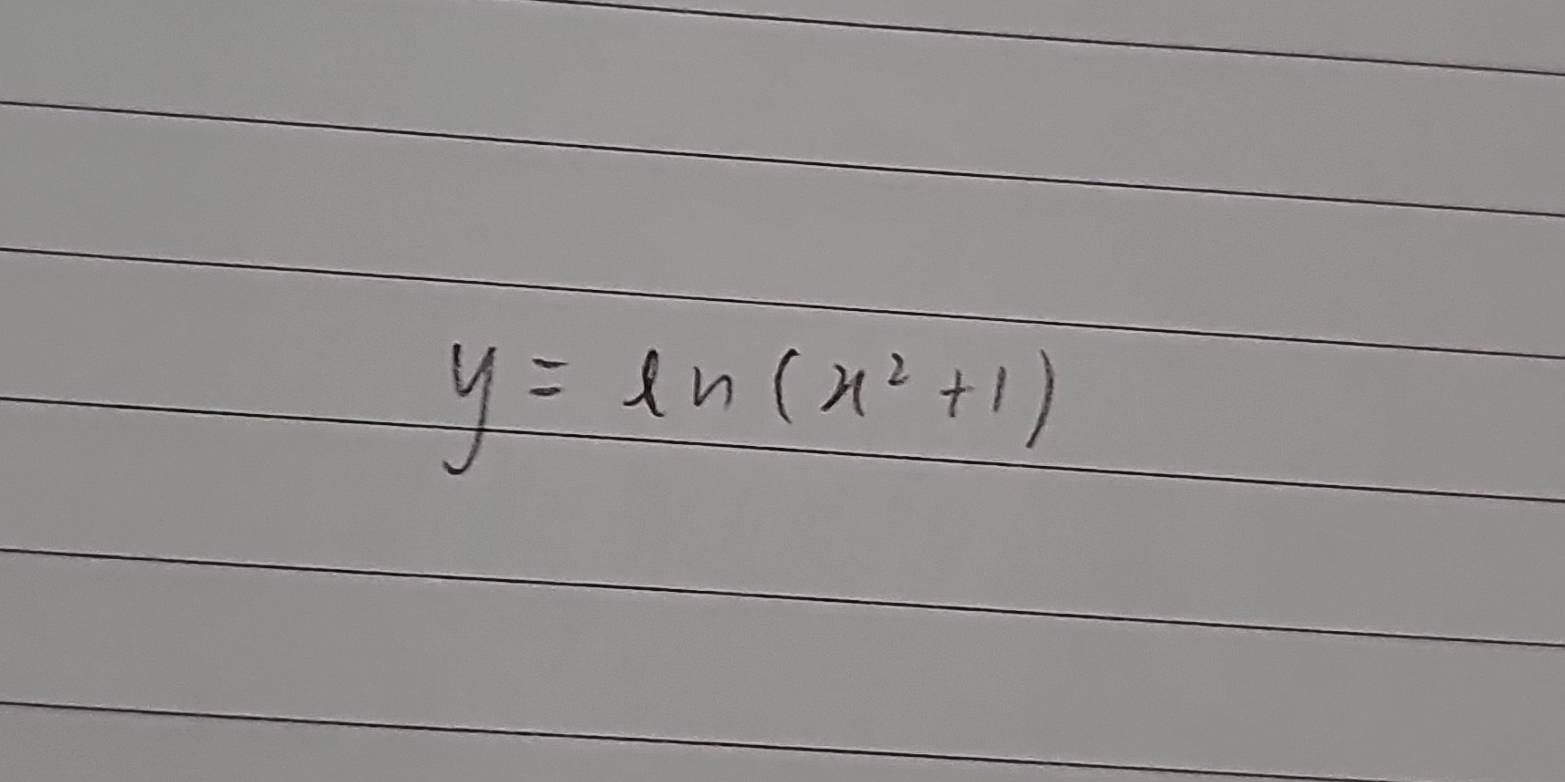 y = ln(x²+1)